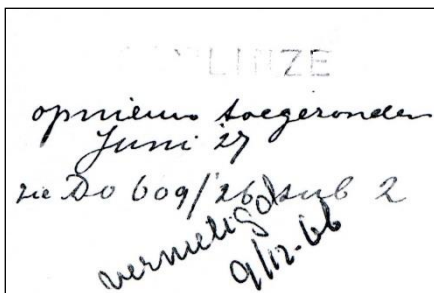 opnieuw toegezonden
Juni 27
zie Do 609/26 sub 2
vernietigd
9/12-66